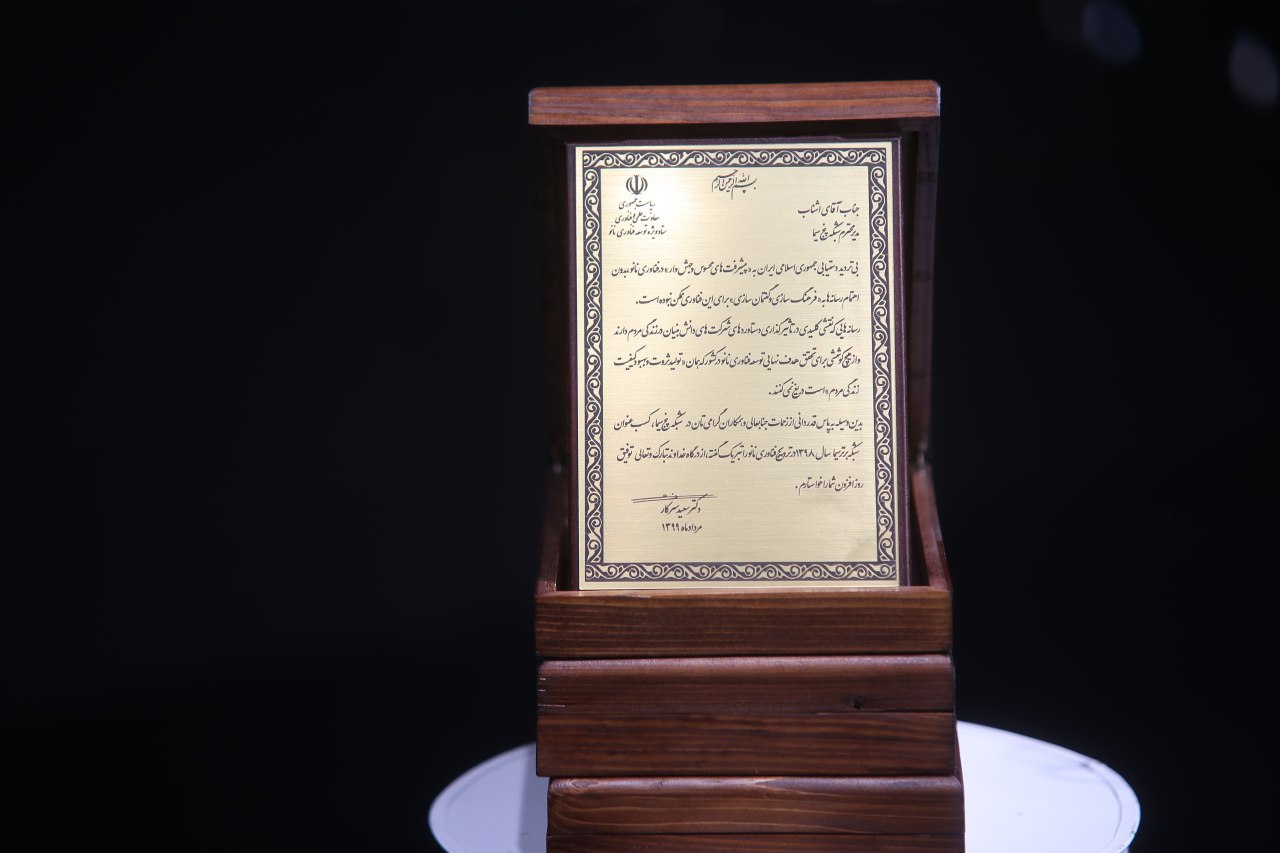 بسم الله الرحمن الرحیم
ریاست جمهوری
معاونت علمی و فناوری
ستاد ویژه توسعه فناوری نانو
جناب آقای اشناب
مدیر محترم شبکه پنج سیما
بی تردید دستیابی جمهوری اسلامی ایران به «پیشرفت های محسوس و جهش وار» در فناوری نانو، بدون
اهتمام رسانه ها به «فرهنگ سازی و گفتمان سازی» برای این فناوری ممکن نبوده است.
رسانه هایی که نقشی کلیدی در تاثیرگذاری دستاوردهای شرکت های دانش بنیان در زندگی مردم دارند
و از هیچ کوششی برای تحقق هدف نهایی توسعه فناوری نانو در کشور که همان «تولید ثروت و بهبود کیفیت
زندگی مردم» است دریغ نمی کنند.
بدین وسیله به پاس قدردانی از زحمات جنابعالی و همکاران گرامی تان در شبکه پنج سیما، کسب عنوان
شبکه برتر سیما سال ۱۳۹۸ در ترویج فناوری نانو را تبریک گفته، از درگاه خداوند تبارک و تعالی توفیق
روز افزون شما را خواستارم.
دکتر سعید سرکار
مرداد ماه ۱۳۹۹